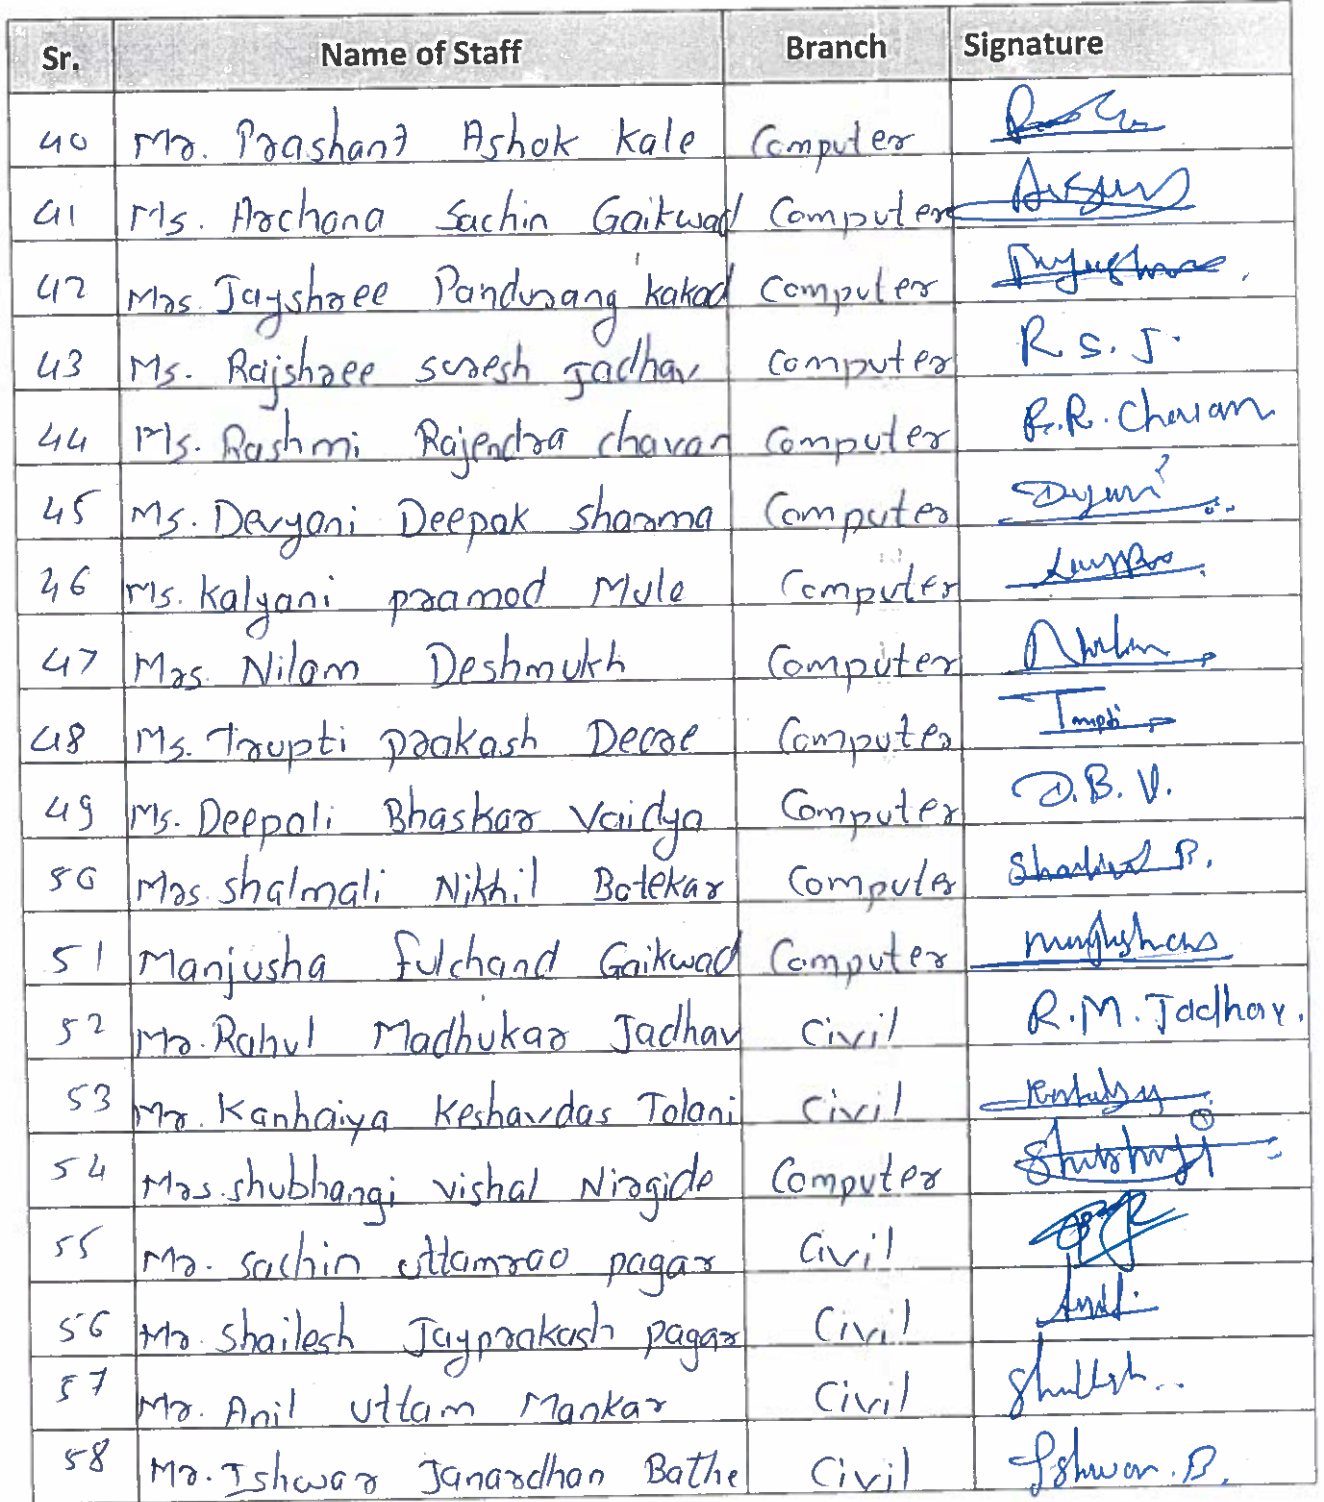 Sr. Name of Staff Branch Signature
40 Mr. Prashant Ashok Kale Computer
41 Ms. Archana Sachin Gaikwad Computer
42 Mrs. Jayshree Pandurang kakad Computer
43 Ms. Rajshree suresh Jadhav Computer R.S.J.
44 Ms. Rashmi Rajendra chavan Computer R.R. Chavan
45 Ms. Devyani Deepak sharma Computer
46 Ms. Kalyani pramod Mule Computer
47 Mrs. Nilam Deshmukh Computer
48 Ms. Trupti prakash Deore Computer Trupti
49 Ms. Deepali Bhaskar Vaidya Computer D.B.V.
50 Mrs. shalmali Nikhil Botekar Computer
51 Manjusha fulchand Gaikwad Computer
52 Mr. Rahul Madhukar Jadhav Civil R.M. Jadhav.
53 Mr. Kanhaiya Keshavdas Tolani Civil
54 Mrs. shubhangi vishal Nirgide Computer
55 Mr. sachin uttamrao pagar Civil
56 Mr. Shailesh Jayprakash pagar Civil
57 Mr. Anil uttam Mankar Civil
58 Mr. Ishwar Janardhan Bathe Civil Ishwar.B.